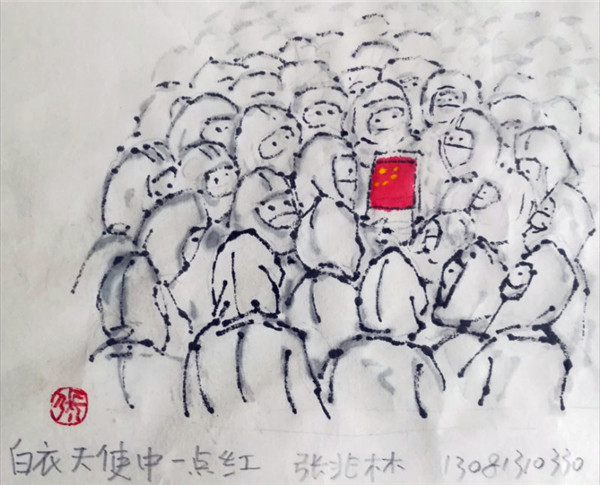 白衣天使中一点红 张兆林 13081310330